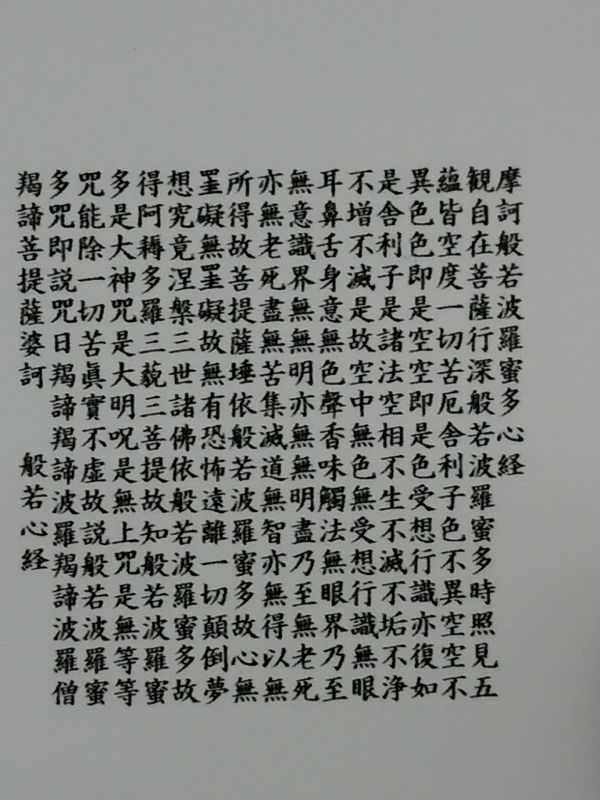 摩訶般若波羅蜜多心経
観自在菩薩行深般若波羅蜜多時照見五
蘊皆空度一切苦厄舎利子色不異空空不
異色色即是空空即是色受想行識亦復如
是舎利子是諸法空相不生不滅不垢不浄
不增不滅是故空中無色無受想行識無眼
耳鼻舌身意無色聲香味觸法無眼界乃至
無意識界無無明亦無無明盡乃至無老死
亦無老死盡無苦集滅道無智亦無得以無
所得故菩提薩埵依般若波羅蜜多故心無
罣礙無罣礙故無有恐怖遠離一切顛倒夢
想究竟涅槃三世諸佛依般若波羅蜜多故
得阿耨多羅三藐三菩提故知般若波羅蜜
多是大神咒是大明呪是無上咒是無等等
咒能除一切苦眞實不虚故説般若波羅蜜
多咒即説咒日羯諦羯諦波羅羯諦波羅僧
羯諦菩提薩婆訶 般若心経